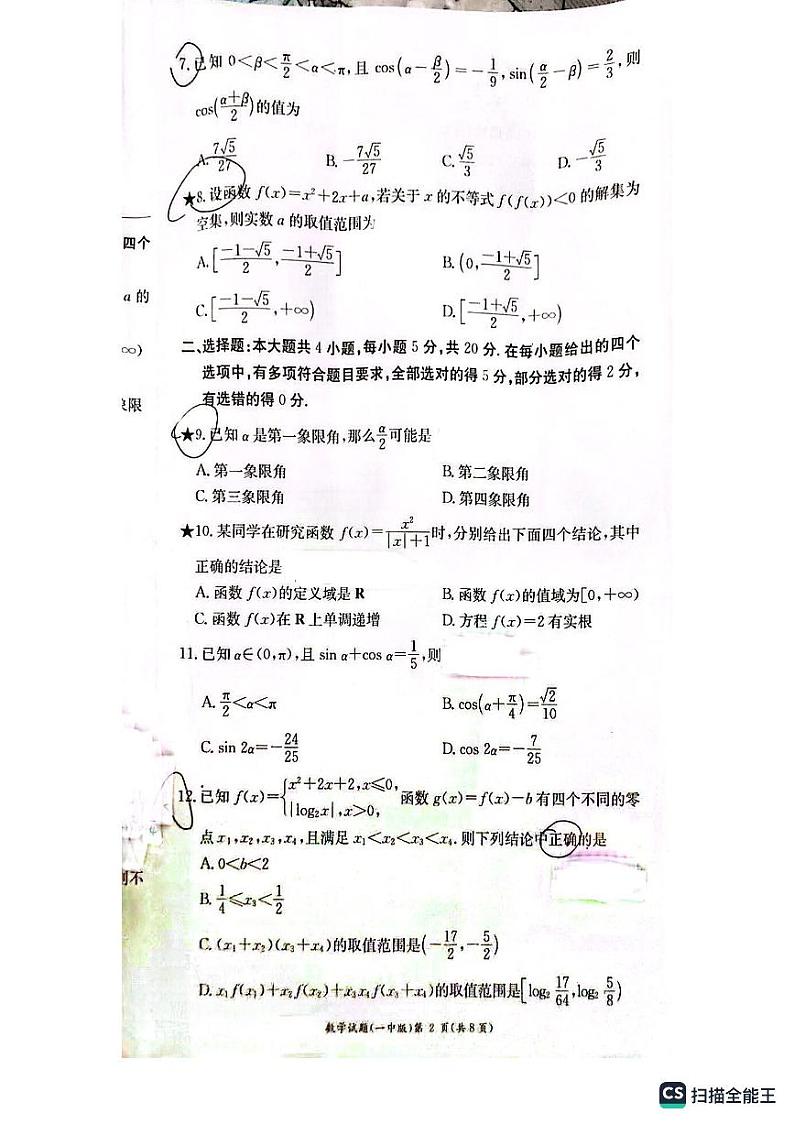 7.已知 0<β<π/2<α<π,且 cos(α-β/2)=-1/9,sin(α/2-β)=2/3,则
cos((α+β)/2)的值为
A. 7√5/27 B. -7√5/27 C. √5/3 D. -√5/3
★8.设函数 f(x)=x²+2x+a,若关于 x 的不等式 f(f(x))<0 的解集为
空集,则实数 a 的取值范围为
四个
A.[(-1-√5)/2,(-1+√5)/2] B.(0,(-1+√5)/2]
a 的
C.[(-1-√5)/2,+∞) D.[(-1+√5)/2,+∞)
∞)
二、选择题:本大题共 4 小题,每小题 5 分,共 20 分. 在每小题给出的四个
选项中,有多项符合题目要求,全部选对的得 5 分,部分选对的得 2 分,
有选错的得 0 分.
象限
★9.已知 α 是第一象限角,那么 α/2 可能是
A. 第一象限角 B. 第二象限角
C. 第三象限角 D. 第四象限角
★10. 某同学在研究函数 f(x)=x²/(|x|+1)时,分别给出下面四个结论,其中
正确的结论是
A. 函数 f(x)的定义域是 R B. 函数 f(x)的值域为[0,+∞)
C. 函数 f(x)在 R 上单调递增 D. 方程 f(x)=2 有实根
11. 已知 α∈(0,π),且 sin α+cos α=1/5,则
A. π/2<α<π B. cos(α+π/4)=√2/10
C. sin 2α=-24/25 D. cos 2α=-7/25
12.已知 f(x)={x²+2x+2,x≤0, |log₂x|,x>0, 函数 g(x)=f(x)-b 有四个不同的零
点 x₁,x₂,x₃,x₄,且满足 x₁<x₂<x₃<x₄. 则下列结论中正确的是
A. 0<b<2
则不
B. 1/4≤x₃<1/2
C. (x₁+x₂)(x₃+x₄)的取值范围是(-17/2,-5/2)
D. x₁f(x₁)+x₂f(x₂)+x₃x₄f(x₃+x₄)的取值范围是[log₂ 17/64,log₂ 5/8)
数学试题(一中版)第 2 页(共 8 页)
CS 扫描全能王